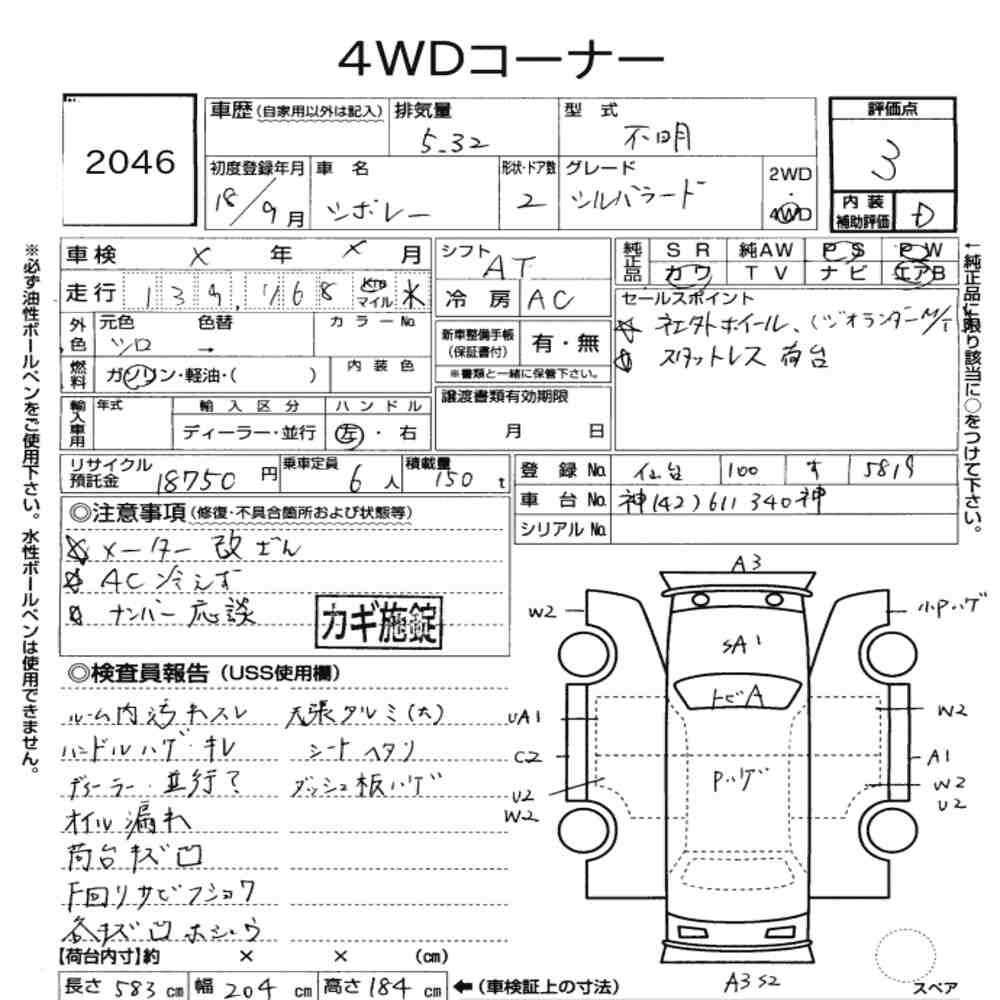 4WDコーナー
2046
車歴(自家用以外は記入)
排気量
5.32
型式
不明
評価点
3
内装
補助評価
D
初度登録年月
18/9月
車名
シボレー
形状・ドア数
2
グレード
シルバラード
2WD
・
4WD
車検 × 年 × 月
走行 139,768 Km マイル ※
シフト
AT
冷房 AC
純正品
SR 純AW PS PW
カワ TV ナビ エアB
←純正品に限り該当に○をつけて下さい。
※必ず油性ボールペンをご使用下さい。水性ボールペンは使用できません。
外色
元色
シロ
色替
→
カラーNo.
燃料
ガソリン・軽油・( )
内装色
新車整備手帳
(保証書付)
有・無
※書類と一緒に保管下さい。
セールスポイント
☆ 社外ホイール、(ジオランダーM/T)
☆ スタットレス 荷台
輸入車用
年式
輸入区分
ディーラー・並行
ハンドル
左・右
譲渡書類有効期限
月 日
リサイクル
預託金
18750円
乗車定員
6人
積載量
150 t
登録No. 仙台 100 す 5819
車台No. 神(42)611340神
シリアルNo.
◎注意事項(修復・不具合箇所および状態等)
☆ メーター 改ざん
☆ AC 冷えず
☆ ナンバー 応談
カギ施錠
◎検査員報告(USS使用欄)
ルーム内 汚れ スレ
ハンドル ハゲ・キレ
ディーラー・並行?
オイル漏れ
荷台 キズ 凹
下回り サビ フショク
各キズ 凹 ホシュウ
天張 タルミ(大)
シート ヘタリ
ダッシュ板ハゲ
【荷台内寸】約 × × (cm)
長さ 583 cm 幅 204 cm 高さ 184 cm ←(車検証上の寸法)
A3
W2
小Pハゲ
SA1
トビA
UA1
W2
C2
Pハゲ
A1
U2
W2
W2
U2
A3 S2
スペア